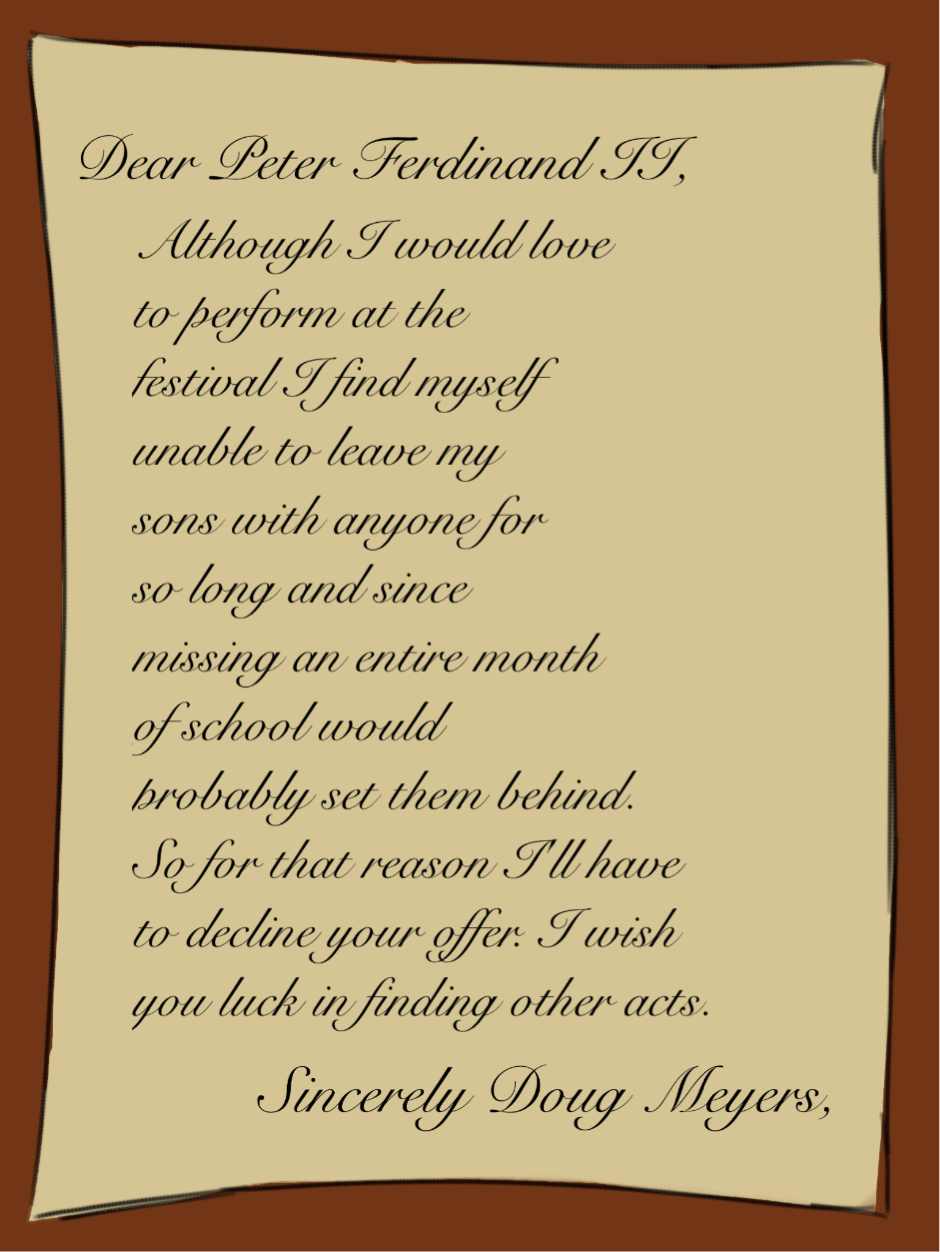 Dear Peter Ferdinand II,
Although I would love
to perform at the
festival I find myself
unable to leave my
sons with anyone for
so long and since
missing an entire month
of school would
probably set them behind.
So for that reason I'll have
to decline your offer. I wish
you luck in finding other acts.
Sincerely Doug Meyers,